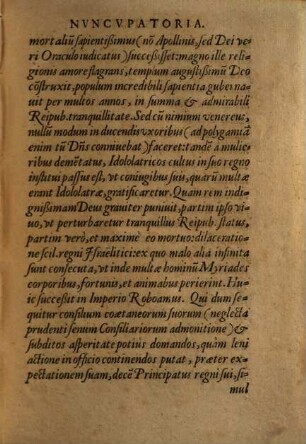 NVNCVPATORIA.
mortaliũ sapientissimus (nõ Apollinis, sed Dei ve-
ri Oraculo iudicatus) successisset: magno ille reli-
gionis amore flagrans, templum augustissimũ Deo
cõstruxit, populum incredibili sapientia guber na-
uit per multos annos, in summa & admirabili
Reipub. tranquillitate. Sed cũ nimium venereus,
nullũ modum in ducendis vxoribus (ad polygamiã
enim tũ Dñs conniuebat) faceret: tandẽ a mulie-
ribus demẽtatus, Idololatricos cultus in suo regno
institui passus est, vt coniugibus suis, quarũ multæ
erant Idololatræ, gratificaretur. Quam rem indi-
gnissimam Deus grauiter puniuit, partim ipso vi-
uo, vt perturbaretur tranquillus Reipub. status,
partim verò, et maximè eo mortuo: dilaceratio-
ne scil. regni Israelitici: ex quo malo alia infinita
sunt consecuta, vt inde multæ hominũ Myriades
corporibus, fortunis, et animabus perierint. Hu-
ic successit in Imperio Roboamus. Qui dum se-
quitur consilium coætaneorum suorum (neglecta
prudenti senum Consiliariorum admonitione) &
subditos asperitate potius domandos, quàm leni
actione in officio continendos putat, præter ex-
pectationem suam, decẽ Principatus regni sui, si-
mul